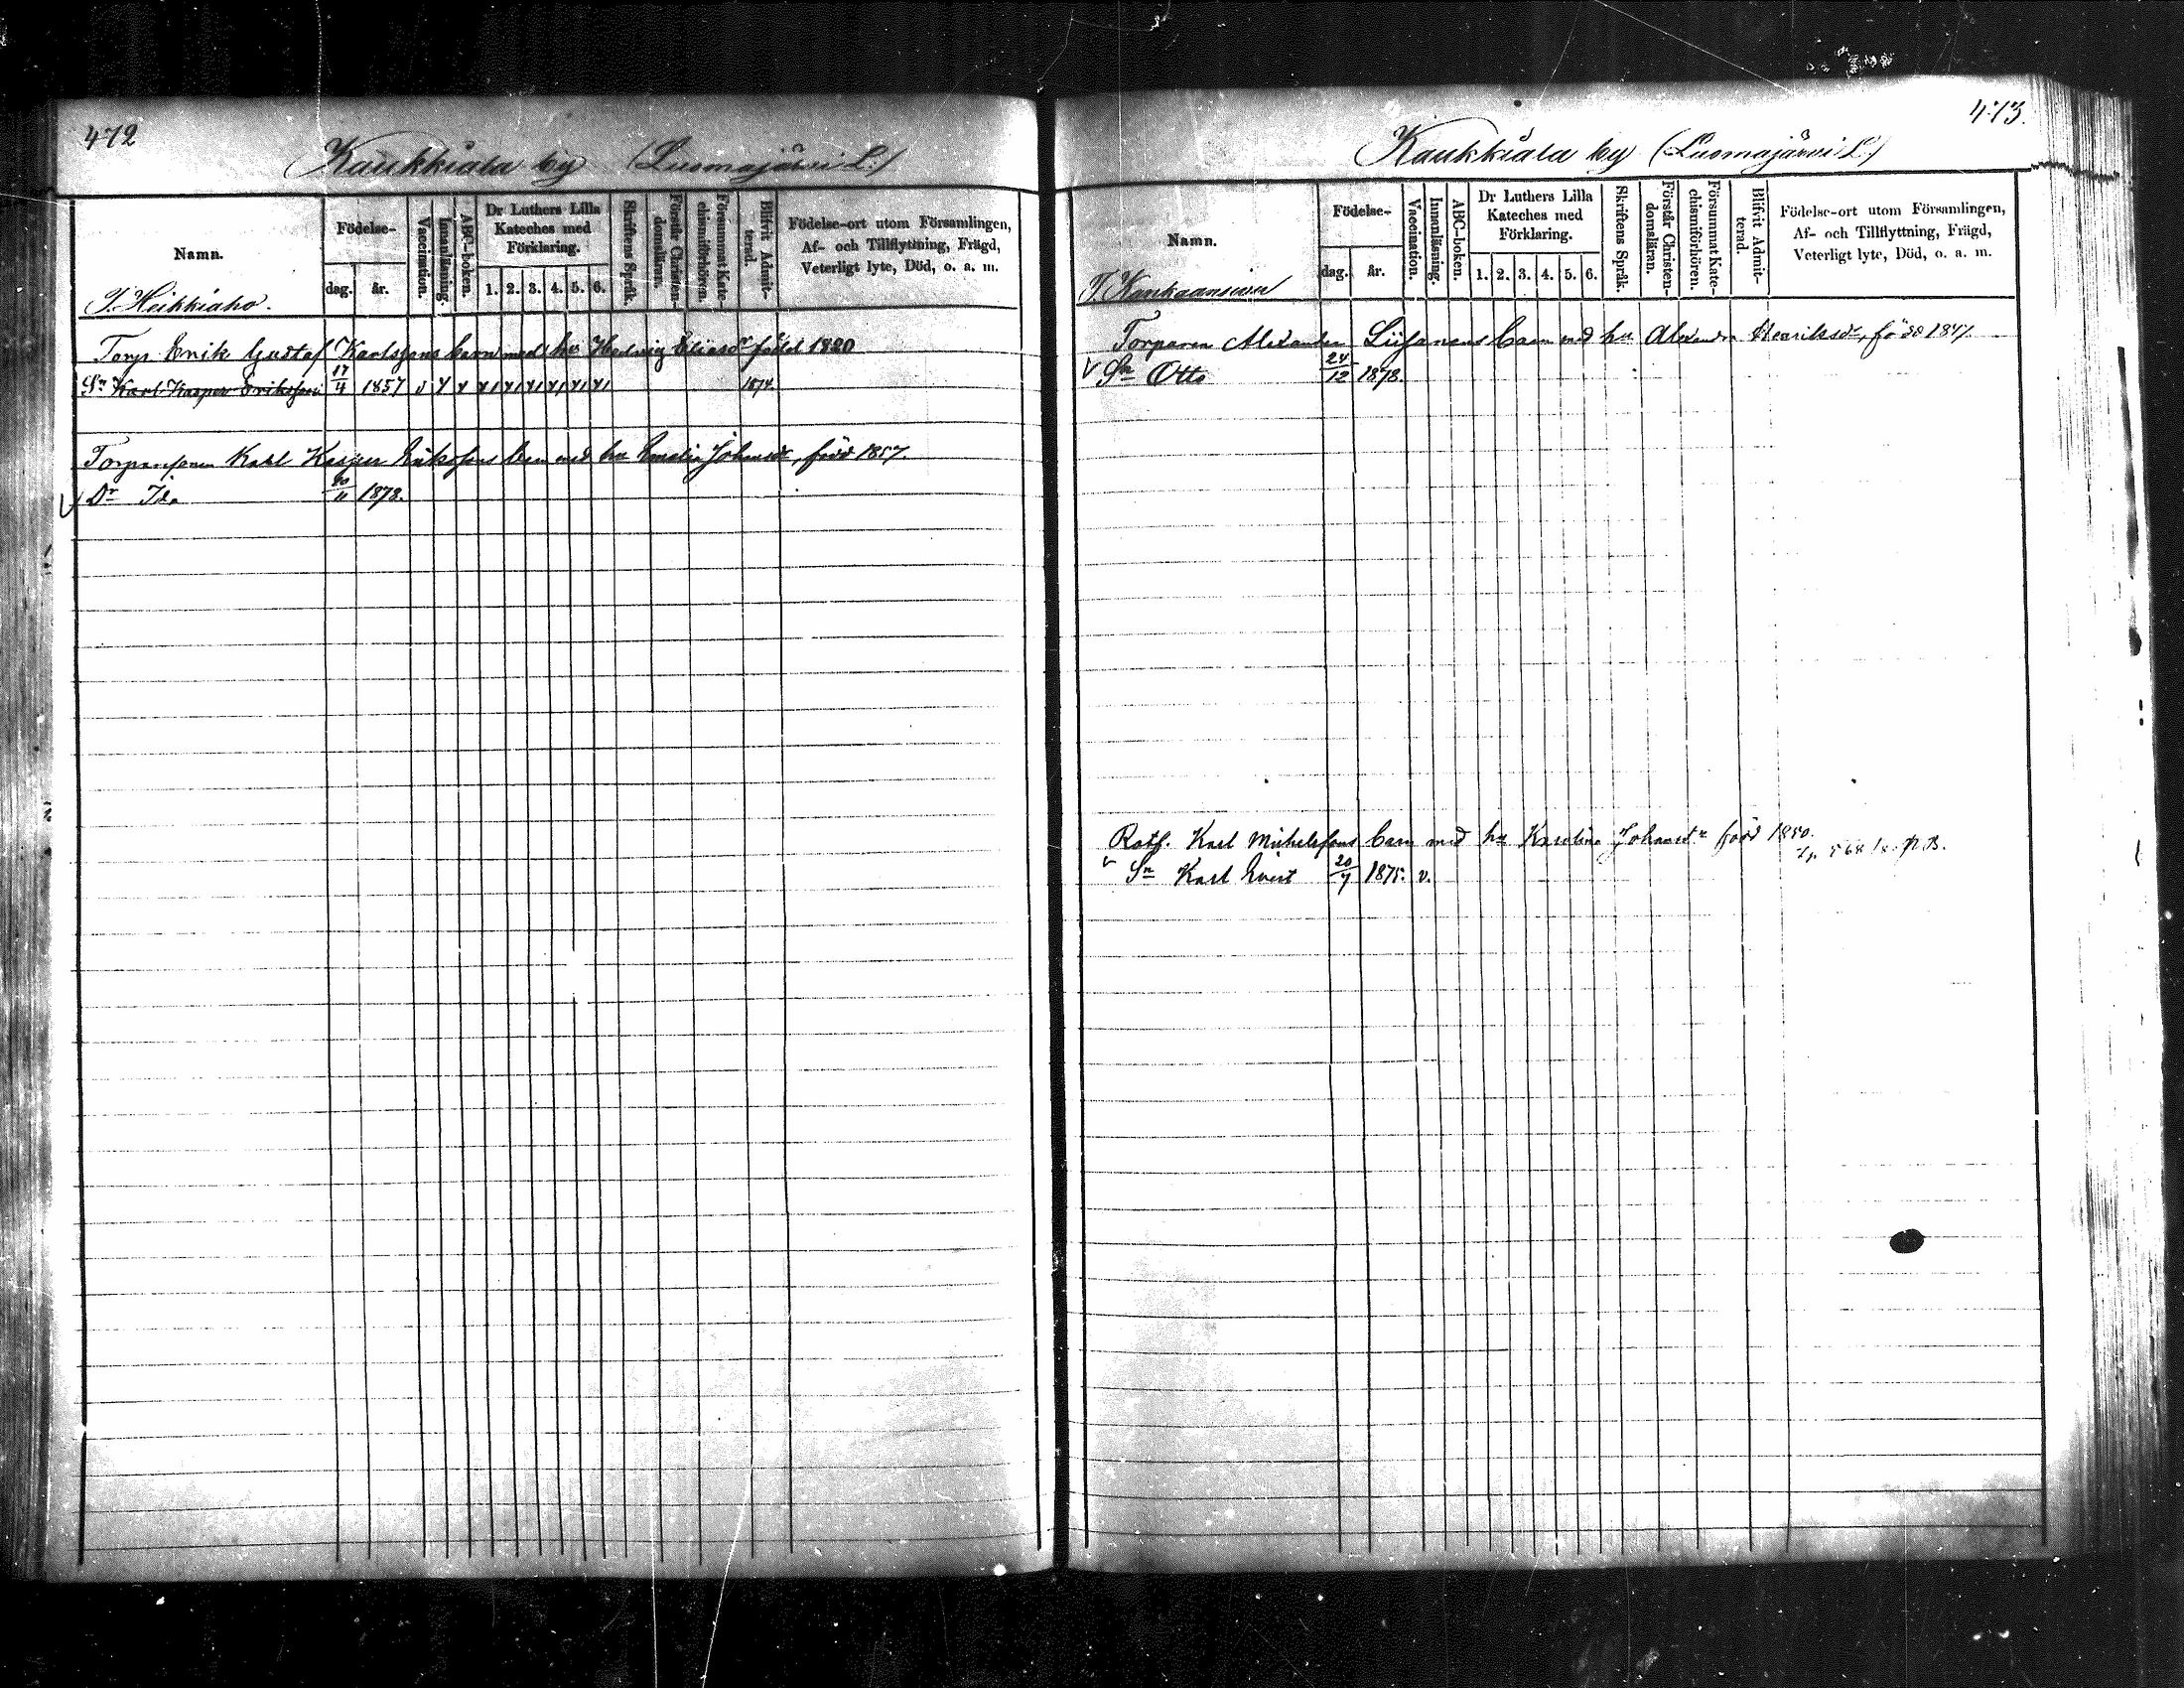 472
Kaukkiala by (Luomajärvi L.)
Namn.
Födelse-
dag.
år.
Vaccination.
Innanläsning.
ABC-boken.
Dr Luthers Lilla
Kateches med
Förklaring.
1. 2. 3. 4. 5. 6.
Skriftens Språk.
Förstår Christen-
domsläran.
Försummat Kate-
chismiförhören.
Blifvit Admit-
terad.
Födelse-ort utom Församlingen,
Af- och Tillflyttning, Frägd,
Veterligt lyte, Död, o. a. m.
T. Heikkiaho.
Torp. Erik Gustaf Karlssons barn med hu Hedvig Eliasdr född 1820
Sn Karl Kasper Eriksson 17/4 1857 v 1874
Torparesonen Karl Kasper Erikssons barn med hu Emelia Johansdr, född 1857.
v Dr Ida 20/11 1878.
473.
Kaukkiala by (Luomajärvi L.)
Namn.
Födelse-
dag.
år.
Vaccination.
Innanläsning.
ABC-boken.
Dr Luthers Lilla
Kateches med
Förklaring.
1. 2. 3. 4. 5. 6.
Skriftens Språk.
Förstår Christen-
domsläran.
Försummat Kate-
chismiförhören.
Blifvit Admit-
terad.
Födelse-ort utom Församlingen,
Af- och Tillflyttning, Frägd,
Veterligt lyte, Död, o. a. m.
Torparen Alexander barn med hu Alexandra Henriksdr, född 1847.
v Sn Otto 24/12 1878.
Karl Michelssons barn med hu Karolina Johansdr född 1850.
v Sn Karl Evert 20/7 1875. v.